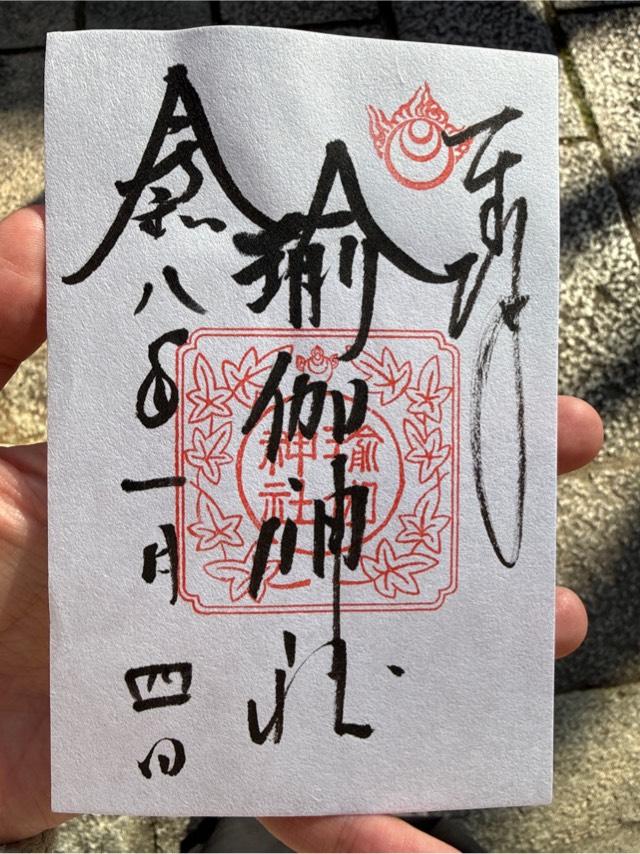 奉拝
瑜伽神社
令和八年一月四日
瑜伽
神社